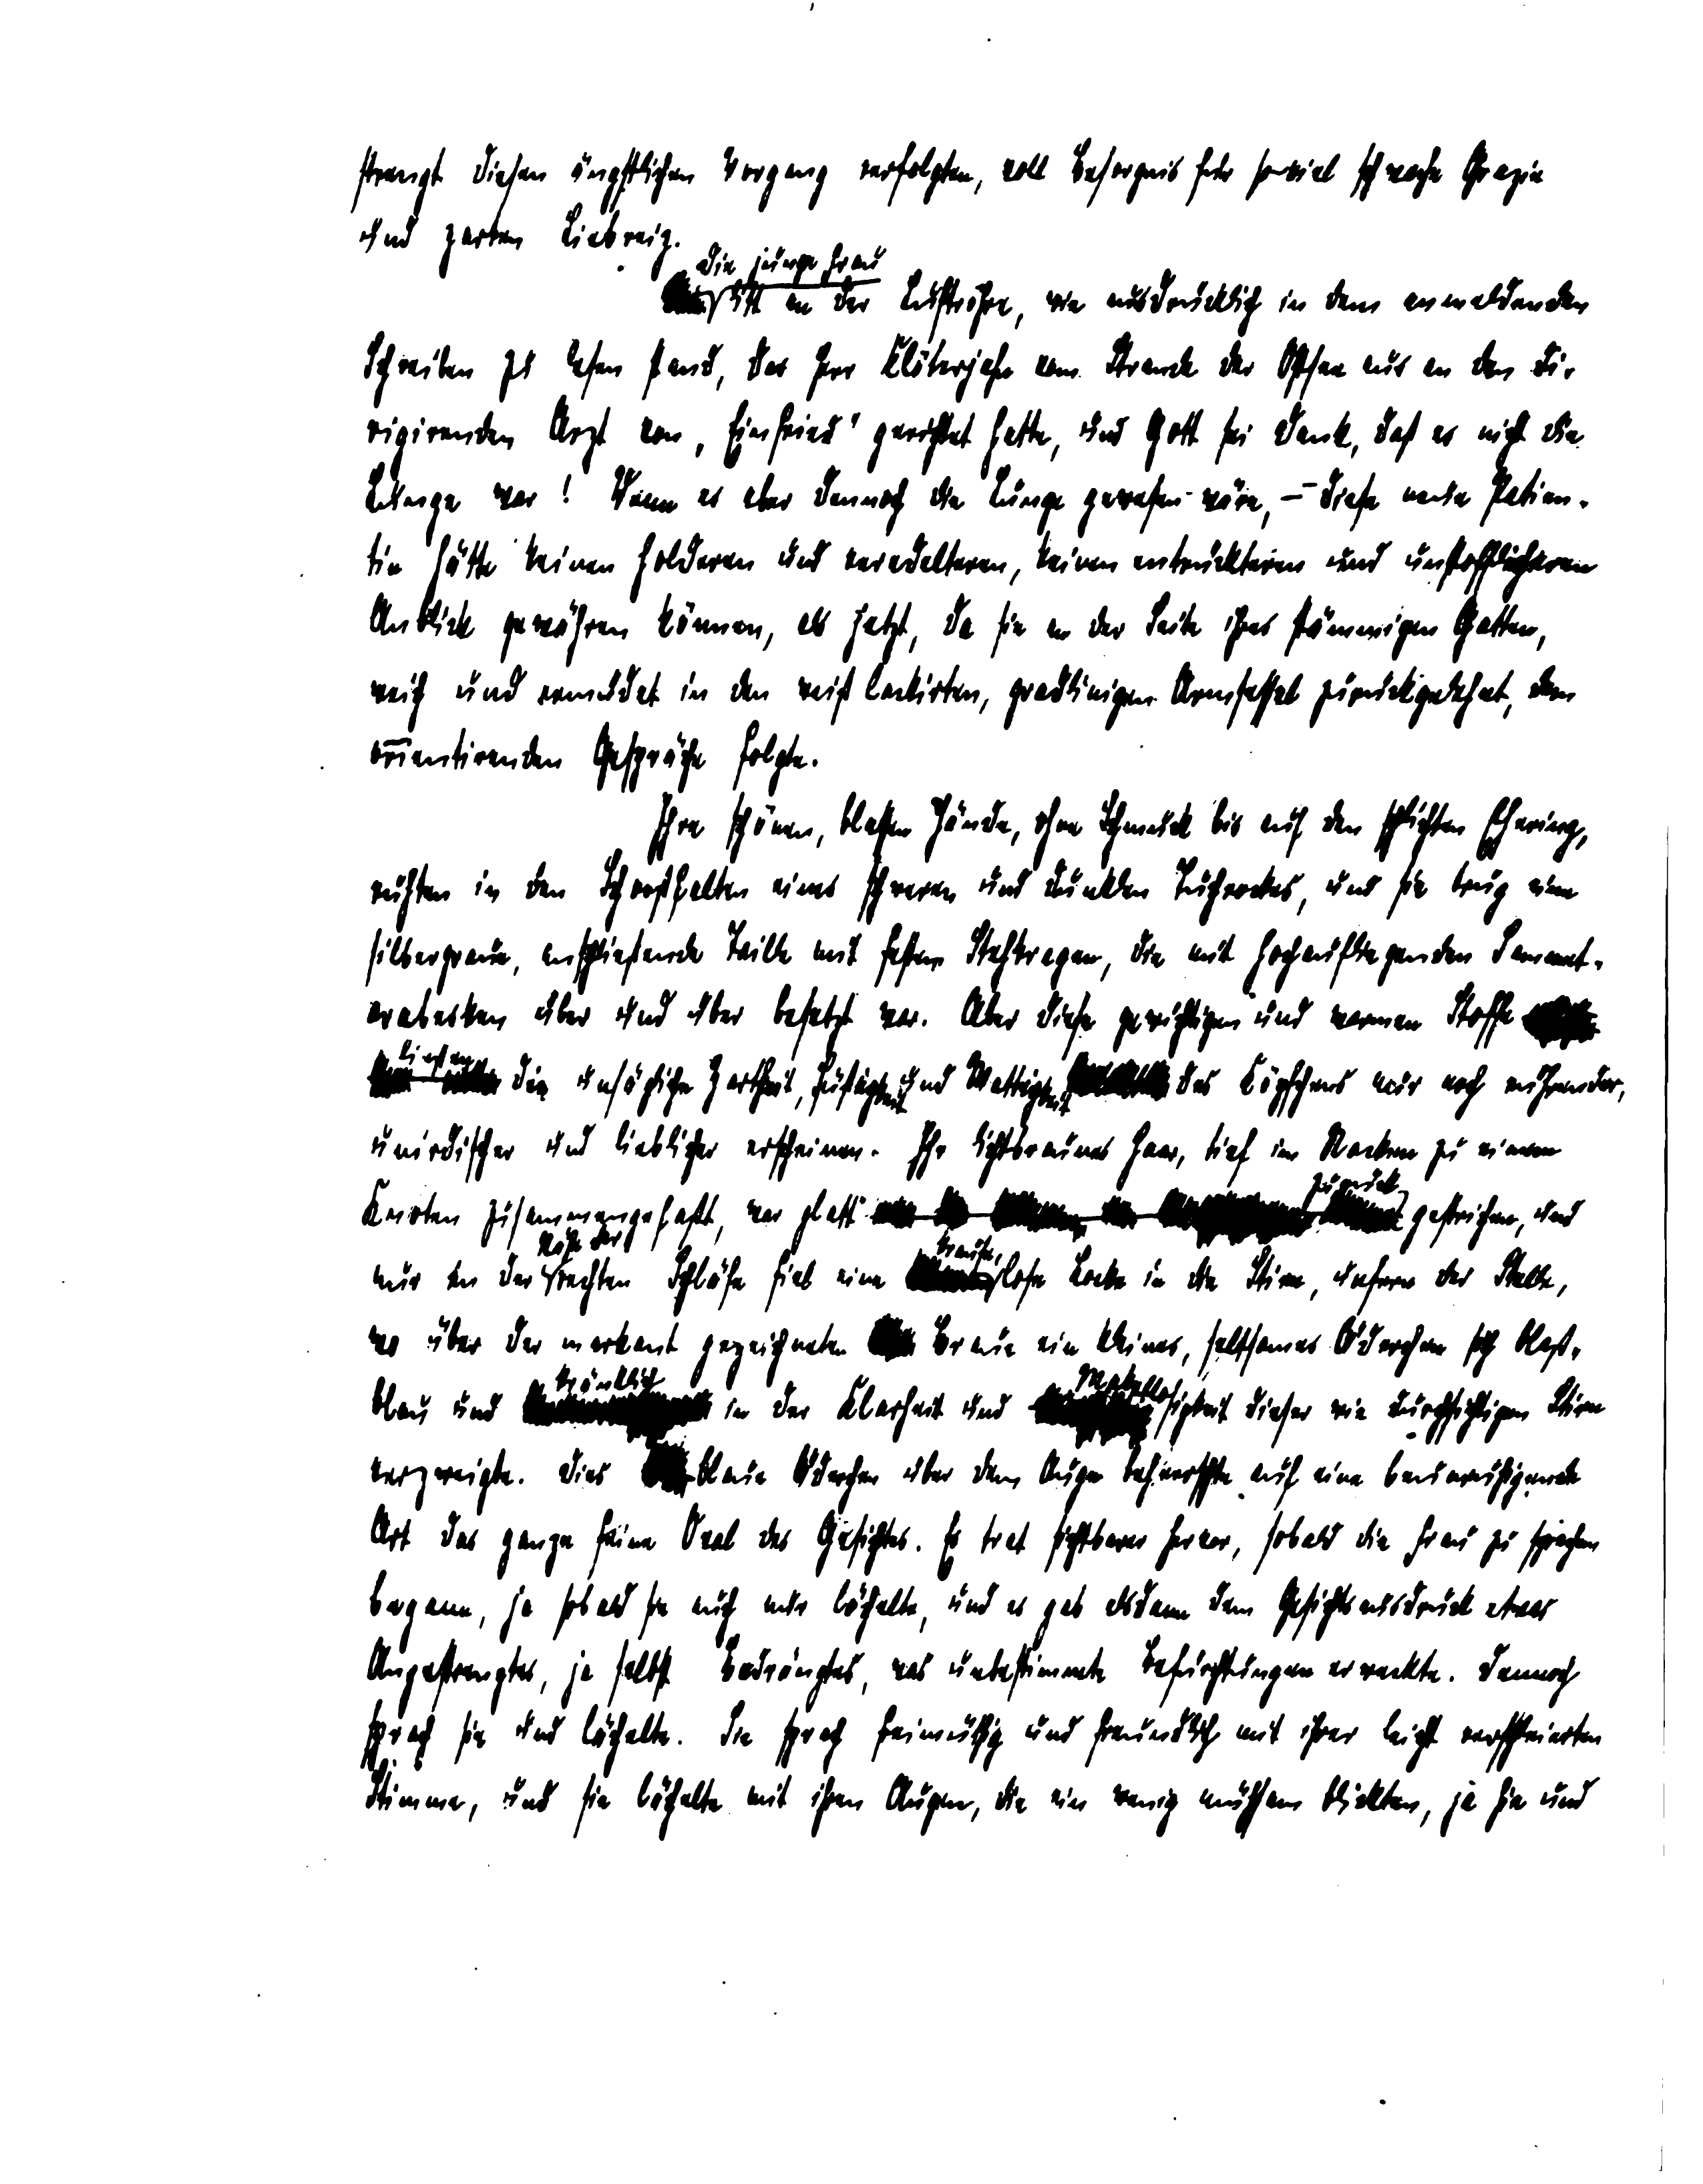 strengt diesen ängstlichen Vorgang verfolgten, voll Besorgnis für soviel schwache Grazie
und zarten Liebreiz.
die junge Frau
litt an der Luftröhre, wie ausdrücklich in dem anmeldenden
Schreiben zu lesen stand, das Herr Klöterjahn vom Strande der Ostsee aus an den di-
rigirenden Arzt von „Einfried" gerichtet hatte, und Gott sei Dank, daß es nicht die
Lunge war! Wenn es aber dennoch die Lunge gewesen wäre, — diese neue Patien-
tin hätte keinen holderen und veredelteren, keinen entrückteren und unstofflicheren
Anblick gewähren können, als jetzt, da sie an der Seite ihres stämmigen Gatten,
weich und ermüdet in den weiß lackirten, gradlinigen Armsessel zurückgelehnt, dem
orientirenden Gespräche folgte.
Ihre schönen, blassen Hände, ohne Schmuck bis auf den schlichten Ehering,
ruhten in den Schooßfalten eines schweren und dunklen Tuchrockes, und sie trug eine
silbergraue, anschließende Taille mit festem Stehkragen, die mit hochaufliegenden Sammet-
arabesken über und über besetzt war. Aber diese gewichtigen und warmen Stoffe
ließen
die unsägliche Zartheit, Süßigkeit und Mattigkeit des Köpfchens nur noch rührender,
unirdischer und lieblicher erscheinen. Ihr lichtbraunes Haar, tief im Nacken zu einem
zurück
Knoten zusammengefaßt, war glatt gestrichen, und
Nähe der krause,
nur in der rechten Schläfe fiel eine lose Locke in die Stirn, unfern der Stelle,
wo über der markant gezeichneten Braue ein kleines, seltsames Äderchen sich blaß-
kränklich Makello
blau und in der Klarheit und sigkeit dieser wie durchsichtigen Stirn
verzweigte. Dies blaue Äderchen über dem Auge beherrschte auf eine beunruhigende
Art das ganze feine Oval des Gesichtes. Es trat sichtbarer hervor, sobald die Frau zu sprechen
begann, ja sobald sie auch nur lächelte, und es gab alsdann dem Gesichtsausdruck etwas
Angestrengtes, ja selbst Bedrängtes, was unbestimmte Befürchtungen erweckte. Dennoch
sprach sie und lächelte. Sie sprach freimüthig und freundlich mit ihrer leicht verschleierten
Stimme, und sie lächelte mit ihren Augen, die ein wenig mühsam blickten, ja hie und